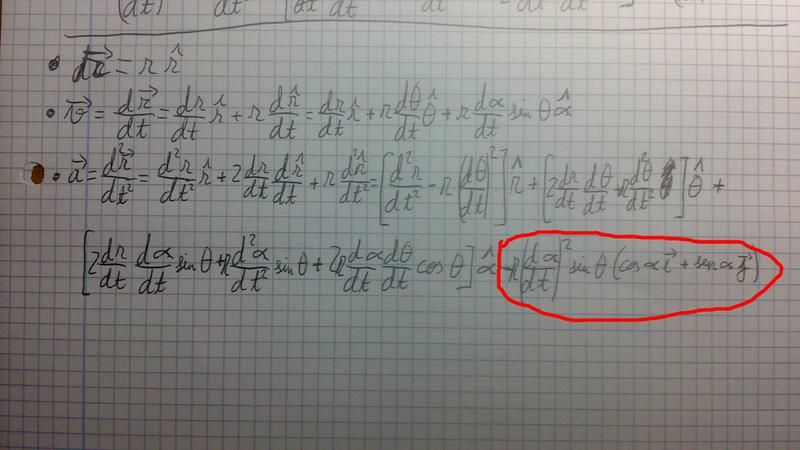 (dt) dt dt dt dt dt dt
• d⃗r = r r̂
• v⃗ = dr⃗/dt = dr/dt r̂ + r dr̂/dt = dr/dt r̂ + r dθ/dt θ̂ + r dα/dt sin θ α̂
• a⃗ = d²r⃗/dt² = d²r/dt² r̂ + 2 dr/dt dr̂/dt + r d²r̂/dt² = [d²r/dt² - r (dθ/dt)²] r̂ + [2 dr/dt dθ/dt + r d²θ/dt²] θ̂ +
[2 dr/dt dα/dt sin θ + r d²α/dt² sin θ + 2r dα/dt dθ/dt cos θ] α̂ - r (dα/dt)² sin θ (cos α i⃗ + sen α j⃗)